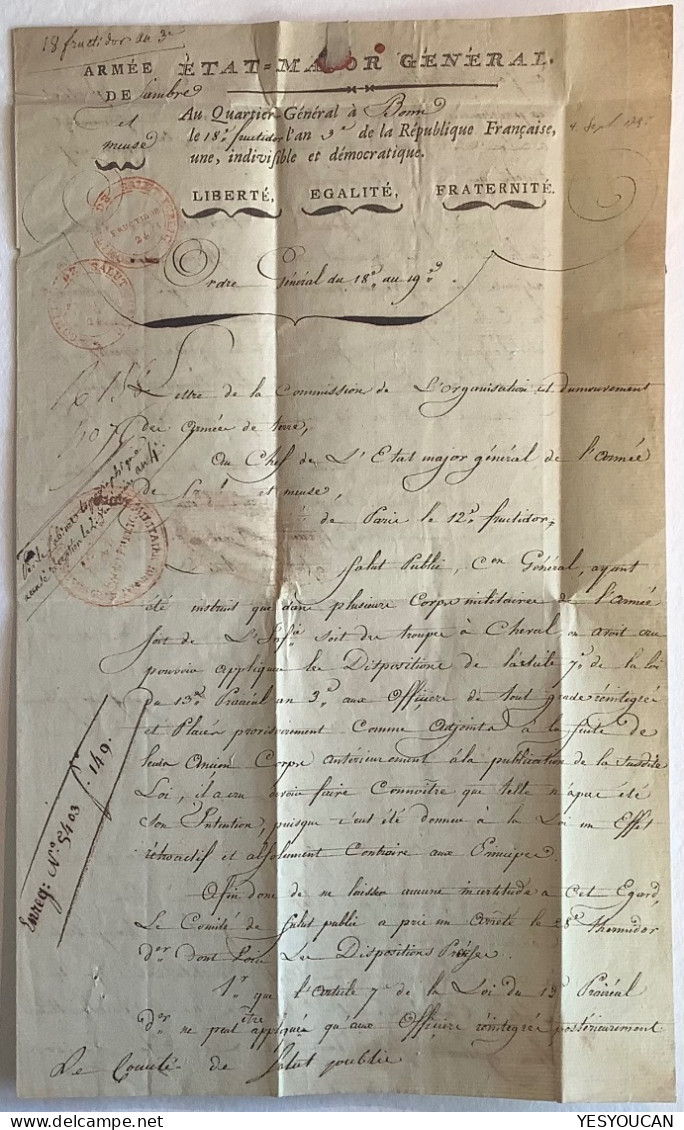 18 fructidor an 3e
ARMÉE
DE Sambre
et
meuse
ÉTAT=MAJOR GÉNÉRAL.
Au Quartier-Général à Bonn
le 18e fructidor l'an 3e de la République Française,
une, indivisible et démocratique.
4. Sept 1795
LIBERTÉ, EGALITÉ, FRATERNITÉ.
Ordre Général du 18e au 19e
Lettre de la Commission de L'Organisation et du mouvement
des armées de terre,
Au Chef de L'Etat major général de l'armée
de et meuse,
de Paris le 12e fructidor,
Salut Public, Cen Général, ayant
été instruit que dans plusieurs Corps militaires de l'armée
soit de L'Infie soit des troupes à Cheval on avoit cru
pouvoir appliquer les Dispositions de l'article 7e de la loi
du 13e Prairéal an 3e aux Officiers de tout grade réintégrés
et Placés provisoirement Comme adjoints à la suite de
leurs Anciens Corps antérieurement à la publication de la susdite
Loi, il a cru devoir faire Connoître que telle n'a pas été
Son Intention, puisque c'eut été donner à la Loi un Effet
rétroactif et absolument Contraire aux Principes.
Afin donc de ne laisser aucune incertitude à Cet Egard,
Le Comité de Salut public a pris un arrêté le 28e thermidor
der dont Voici Les Dispositions Précises.
1er que l'article 7e de la Loi du 13e Prairéal
der ne peut être appliqué qu'aux Officiers réintégrés postérieurement
Le Comité de Salut public
Enreg: N° 5403
149.
YESYOUCAN